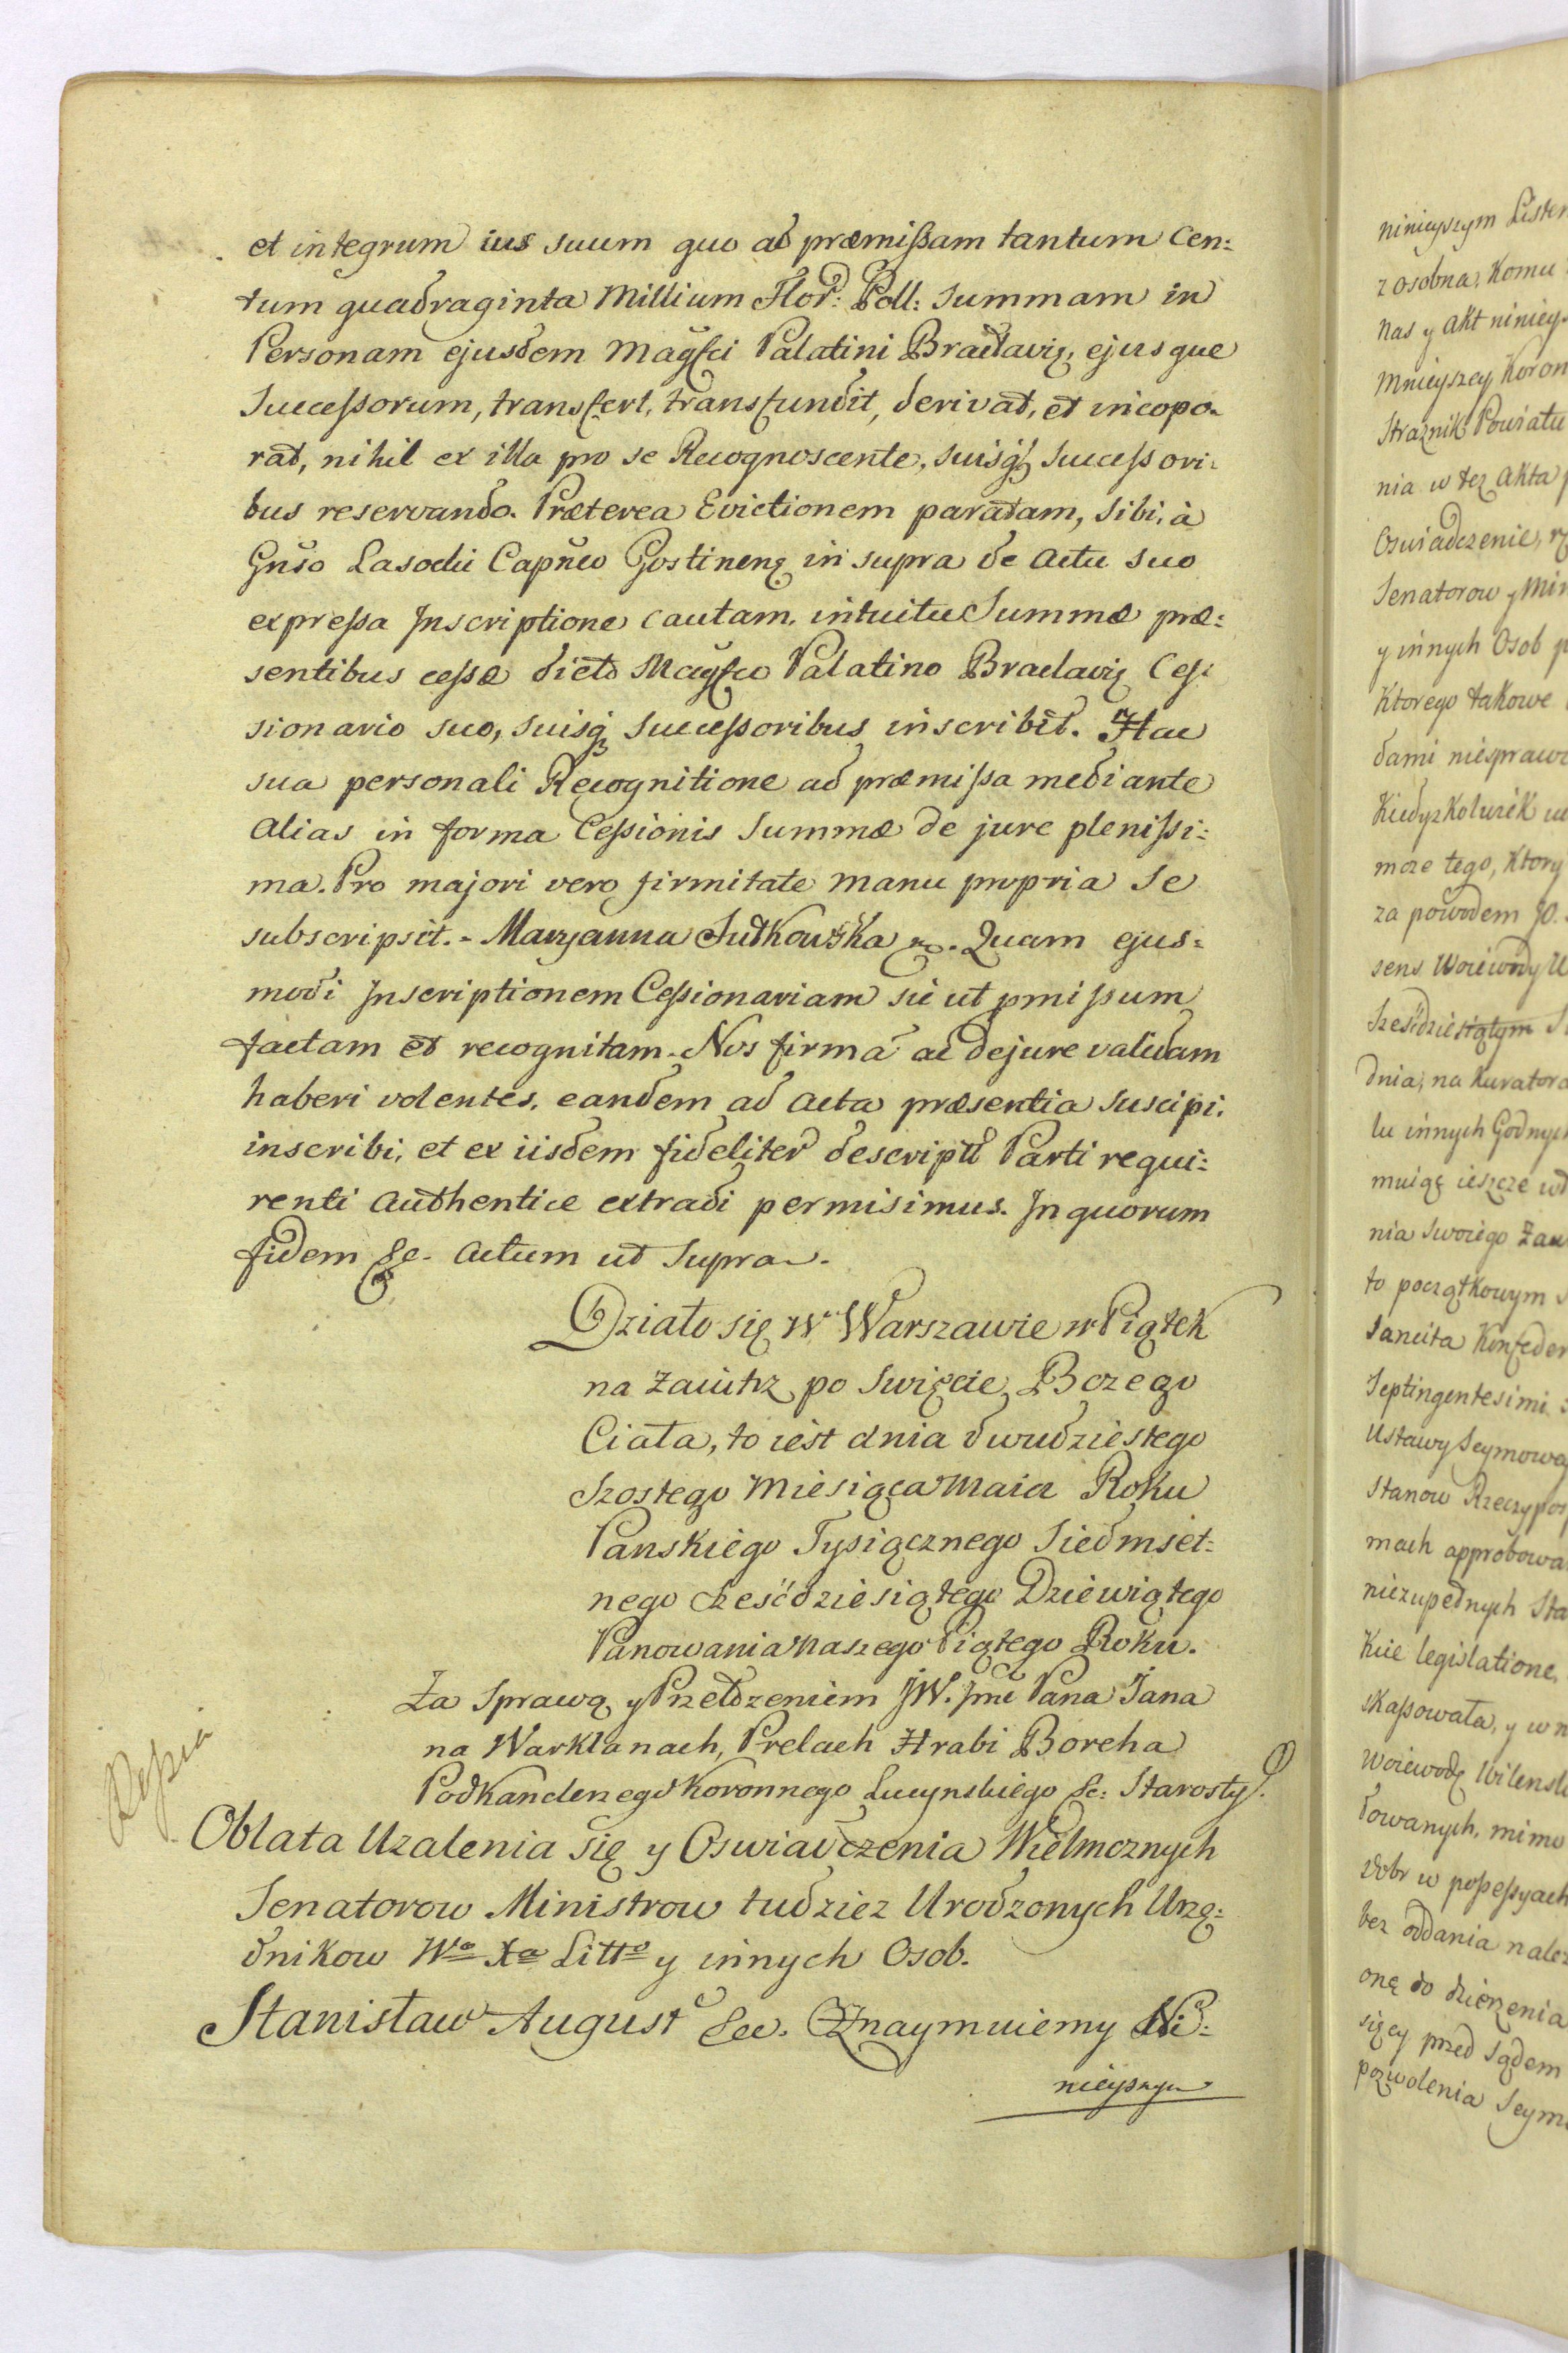 et integrum ius suum quo ad præmißam tantum Cen:
tum quadraginta Millium Flor: Poll: Summam in
Personam ejusdem Magfci Palatini Braclavię, ejusque
Successorum, transfert, transfundit, derivat, et incopo-
rat, nihil ex illa pro se Recognoscente, suisq Successori:
bus reservando. Præterea Evictionem paratam, sibi, à
Gnso Lasocki Capneo Gostinenę in supra de Actu suo
expreßa Inscriptione cautam, intuitu Summæ præ:
sentibus ceßæ dicto Magfco Palatino Braclavię Ceß:
sionario suo, suisq Succeßoribus inscribit. Hac
sua personali Recognitione ad præmißa mediante
Alias in forma Ceßionis Summæ de jure plenißi:
ma. Pro majori vero firmitate manu propria Se
subscripsit. - Maryanna Sutkowska. Quam ejus:
modi Inscriptionem Ceßionariam sic ut pmißum
factam et recognitam. Nos firmā ac de jure validam
haberi volentes, eandem ad Acta præsentia suscipi,
inscribi, et ex iisdem fideliter descriptū Parti requi:
renti Authentice extradi permisimus. In quorum
fidem &c. Actum ut Supra.
Działo się w Warszawie w Piątek
na zaiutrz po Swięcie Bozego
Ciała, to iest dnia dwudziestego
Szostego Miesiąca Maia Roku
Panskiego Tysiącznego Siedmset:
nego Sześćdziesiątego Dziewiątego
Panowania Naszego Piątego Roku.
Za Sprawą y Przełożeniem JW. Jmć Pana Jana
na Warklanach, Prelach Hrabi Borcha
PodKanclerzego Koronnego Lucynskiego &c: Starosty.
Reßia
Oblata Uzalenia Się y Oswiadczenia Wielmoznych
Senatorow Ministrow tudziez Urodzonych Urzę:
dnikow Wo Xa Litto y innych Osob.
Stanisław August &c. Oznaymuiemy Ni:
nieyszym
ninieyszym Listem
z osobna, Komu
Nas y Akt ninieys
Mnieyszey Koron
Straznik Powiatu
nia w tez Akta
Oswiadczenie,
Senatorow y Min
y innych Osob
Ktorego takowe
dami niesprawe
Kiedyzkolwiek
moze tego, Ktory
za powodem JO.
sens Woiewody
Sześćdziesiątym
dnia, na Kuratora
lu innych Godnych
muiąę ieszcze
nia swoiego Zaw
to początkowym
sancita Konfeder
Septingentesimi
Ustawy Seymowey
Stanow Rzeczypos
mach approbowa
niezupełnych Sta
Kie legislatione,
skaßowała, y w n
Woiewodę Wilensk
dowanych, mimo
dobr w poßeßyach
bez oddania należ
onę do dzierzenia
sięcy przed Sądem
pozwolenia Seym